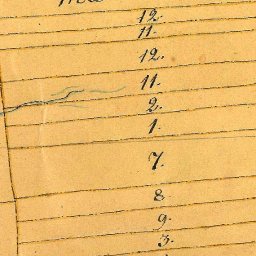 12
11.
12.
11.
2.
1.
7.
8
9.
3.